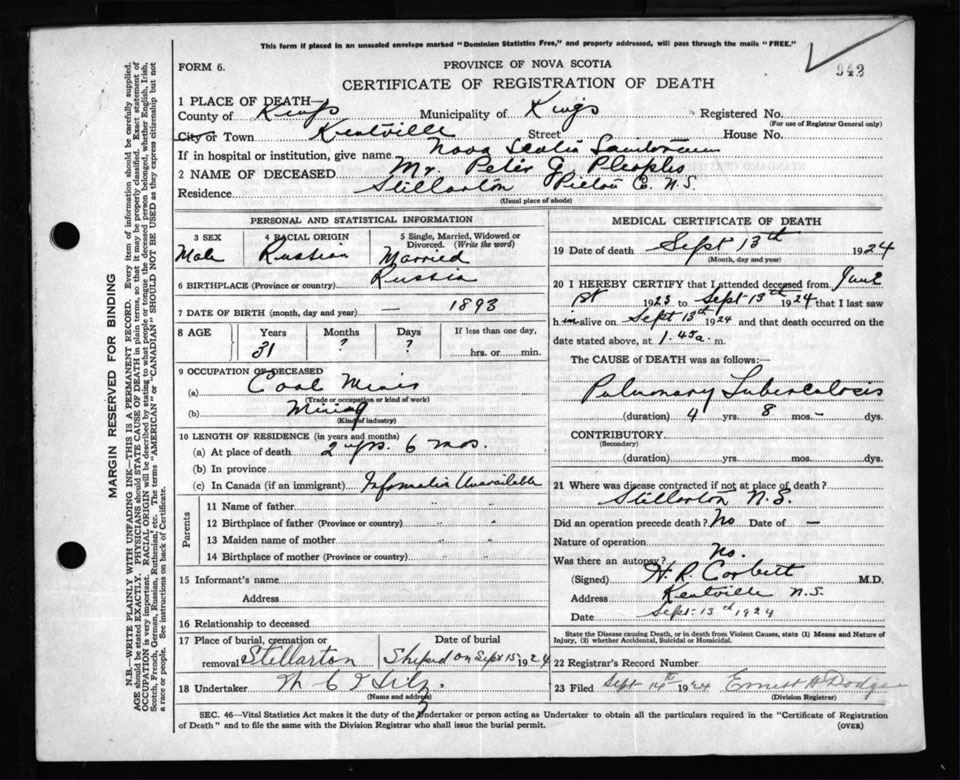 This form if placed in an unsealed envelope marked "Dominion Statistics Free," and properly addressed, will pass through the mails "FREE."
942
FORM 6.
PROVINCE OF NOVA SCOTIA
CERTIFICATE OF REGISTRATION OF DEATH
1 PLACE OF DEATH—
County of Kings Municipality of Kings Registered No.
(For use of Registrar General only)
City or Town Kentville Street House No.
If in hospital or institution, give name Nova Scotia
2 NAME OF DECEASED Mr. Peter G
Residence Stellarton Pictou Co. N.S.
(Usual place of abode)
PERSONAL AND STATISTICAL INFORMATION
3 SEX 4 RACIAL ORIGIN 5 Single, Married, Widowed or Divorced. (Write the word)
Male Russian Married
6 BIRTHPLACE (Province or country) Russia
7 DATE OF BIRTH (month, day and year) — 1893
8 AGE Years Months Days If less than one day,
31 ? ? hrs. or min.
9 OCCUPATION OF DECEASED
(a) Coal
(Trade or occupation or kind of work)
(b) Mining
(Kind of industry)
10 LENGTH OF RESIDENCE (in years and months)
(a) At place of death 2 yrs. 6 mos.
(b) In province
(c) In Canada (if an immigrant) Information Unavailable
Parents
11 Name of father " "
12 Birthplace of father (Province or country) " "
13 Maiden name of mother " "
14 Birthplace of mother (Province or country) " "
15 Informant's name
Address
16 Relationship to deceased
17 Place of burial, cremation or removal Stellarton
Date of burial Shiped on Sept 15 1924
18 Undertaker
(Name and address)
MEDICAL CERTIFICATE OF DEATH
19 Date of death Sept 13th 1924
(Month, day and year)
20 I HEREBY CERTIFY that I attended deceased from June
1st 1923 to Sept 13th 1924 that I last saw
him alive on Sept 13th 1924 and that death occurred on the
date stated above, at 1.45 a. m.
The CAUSE of DEATH was as follows:—
Pulmonary Tuberculosis
(duration) 4 yrs. 8 mos. - dys.
CONTRIBUTORY
(Secondary)
(duration) yrs. mos. dys.
21 Where was disease contracted if not at place of death?
Stellarton N.S.
Did an operation precede death? No Date of —
Nature of operation
Was there an autopsy? No.
(Signed) H. R. Corbett M.D.
Address Kentville N.S.
Date Sept. 13th 1924
State the Disease causing Death, or in death from Violent Causes, state (1) Means and Nature of Injury, (2) whether Accidental, Suicidal or Homicidal.
22 Registrar's Record Number
23 Filed Sept 14th 1924 Ernest H Dodge
(Division Registrar)
SEC. 46—Vital Statistics Act makes it the duty of the Undertaker or person acting as Undertaker to obtain all the particulars required in the "Certificate of Registration
of Death" and to file the same with the Division Registrar who shall issue the burial permit.
(OVER)
MARGIN RESERVED FOR BINDING
N.B.—WRITE PLAINLY WITH UNFADING INK—THIS IS A PERMANENT RECORD. Every item of information should be carefully supplied.
AGE should be stated EXACTLY. PHYSICIANS should STATE CAUSE OF DEATH in plain terms, so that it may be properly classified. Exact statement of
OCCUPATION is very important. RACIAL ORIGIN will be described by stating to what people or tongue the deceased person belonged, whether English, Irish,
Scotch, French, German, Russian, Ruthenian, etc. The terms "AMERICAN" or "CANADIAN" SHOULD NOT BE USED as they express citizenship but not
a race or people. See instructions on back of Certificate.